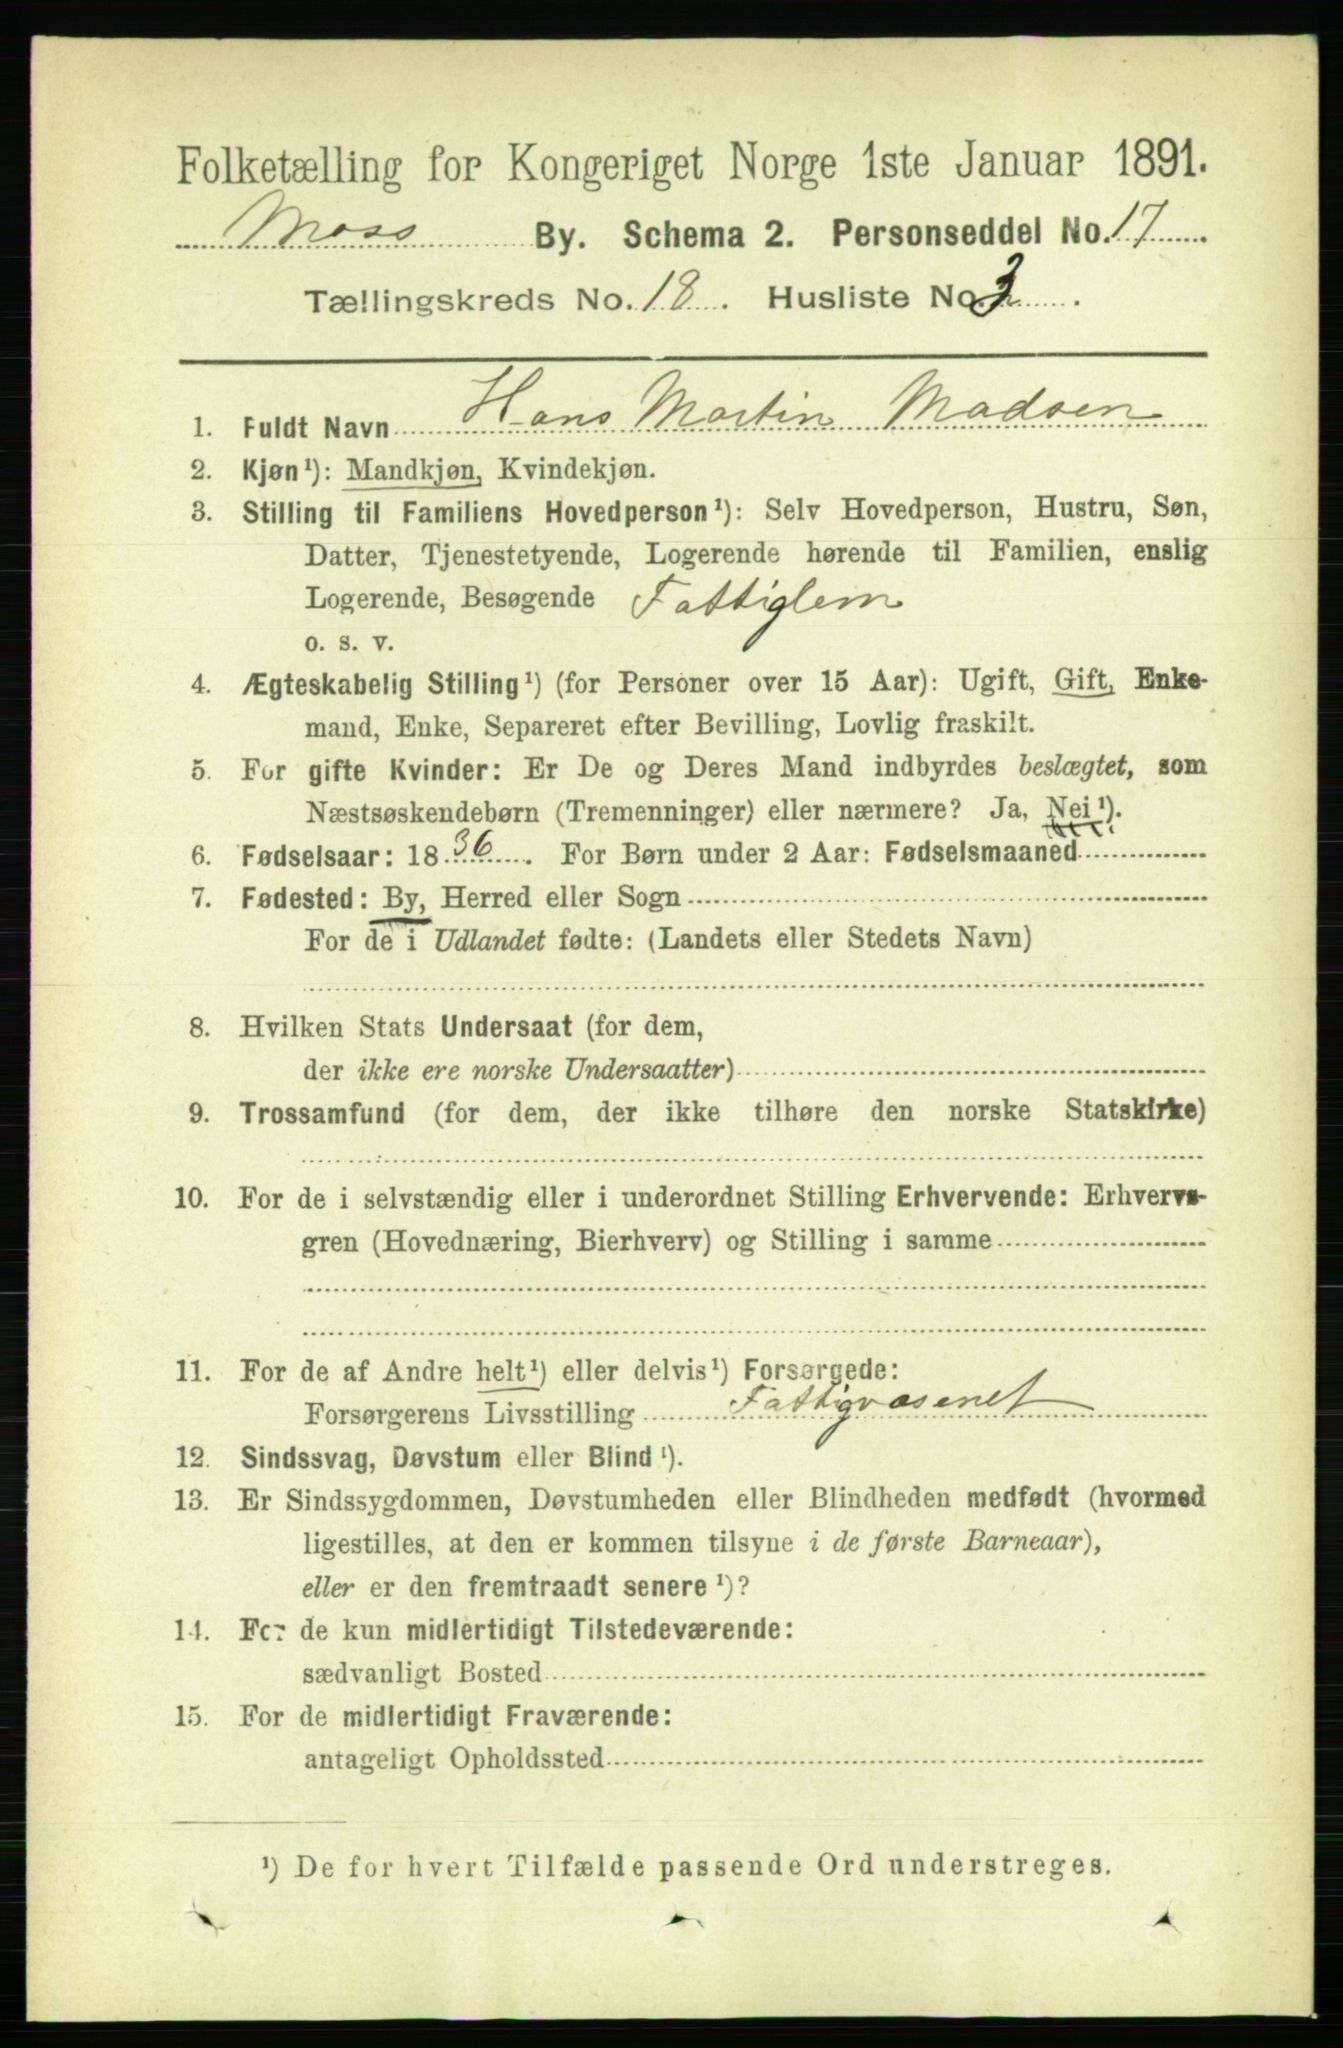 Folketælling for Kongeriget Norge 1ste Januar 1891.
Moss By. Schema 2. Personseddel No. 17
Tællingskreds No. 18. Husliste No. 3.
1. Fuldt Navn Hans Martin Madsen
2. Kjøn¹): Mandkjøn, Kvindekjøn.
3. Stilling til Familiens Hovedperson¹): Selv Hovedperson, Hustru, Søn,
Datter, Tjenestetyende, Logerende hørende til Familien, enslig
Logerende, Besøgende Fattiglem
o. s. v.
4. Ægteskabelig Stilling¹) (for Personer over 15 Aar): Ugift, Gift, Enke-
mand, Enke, Separeret efter Bevilling, Lovlig fraskilt.
5. For gifte Kvinder: Er De og Deres Mand indbyrdes beslægtet, som
Næstsøskendebørn (Tremenninger) eller nærmere? Ja, Nei¹).
6. Fødselsaar: 1836. For Børn under 2 Aar: Fødselsmaaned
7. Fødested: By, Herred eller Sogn
For de i Udlandet fødte: (Landets eller Stedets Navn)
8. Hvilken Stats Undersaat (for dem,
der ikke ere norske Undersaatter)
9. Trossamfund (for dem, der ikke tilhøre den norske Statskirke)
10. For de i selvstændig eller i underordnet Stilling Erhvervende: Erhvervs-
gren (Hovednæring, Bierhverv) og Stilling i samme
11. For de af Andre helt¹) eller delvis¹) Forsørgede:
Forsørgerens Livsstilling Fattigvæsenet
12. Sindssvag, Døvstum eller Blind¹).
13. Er Sindssygdommen, Døvstumheden eller Blindheden medfødt (hvormed
ligestilles, at den er kommen tilsyne i de første Barneaar),
eller er den fremtraadt senere¹)?
14. For de kun midlertidigt Tilstedeværende:
sædvanligt Bosted
15. For de midlertidigt Fraværende:
antageligt Opholdssted
¹) De for hvert Tilfælde passende Ord understreges.